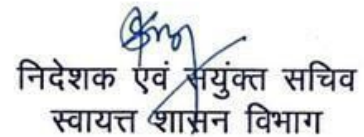 निदेशक एवं संयुक्त सचिव
स्वायत्त शासन विभाग